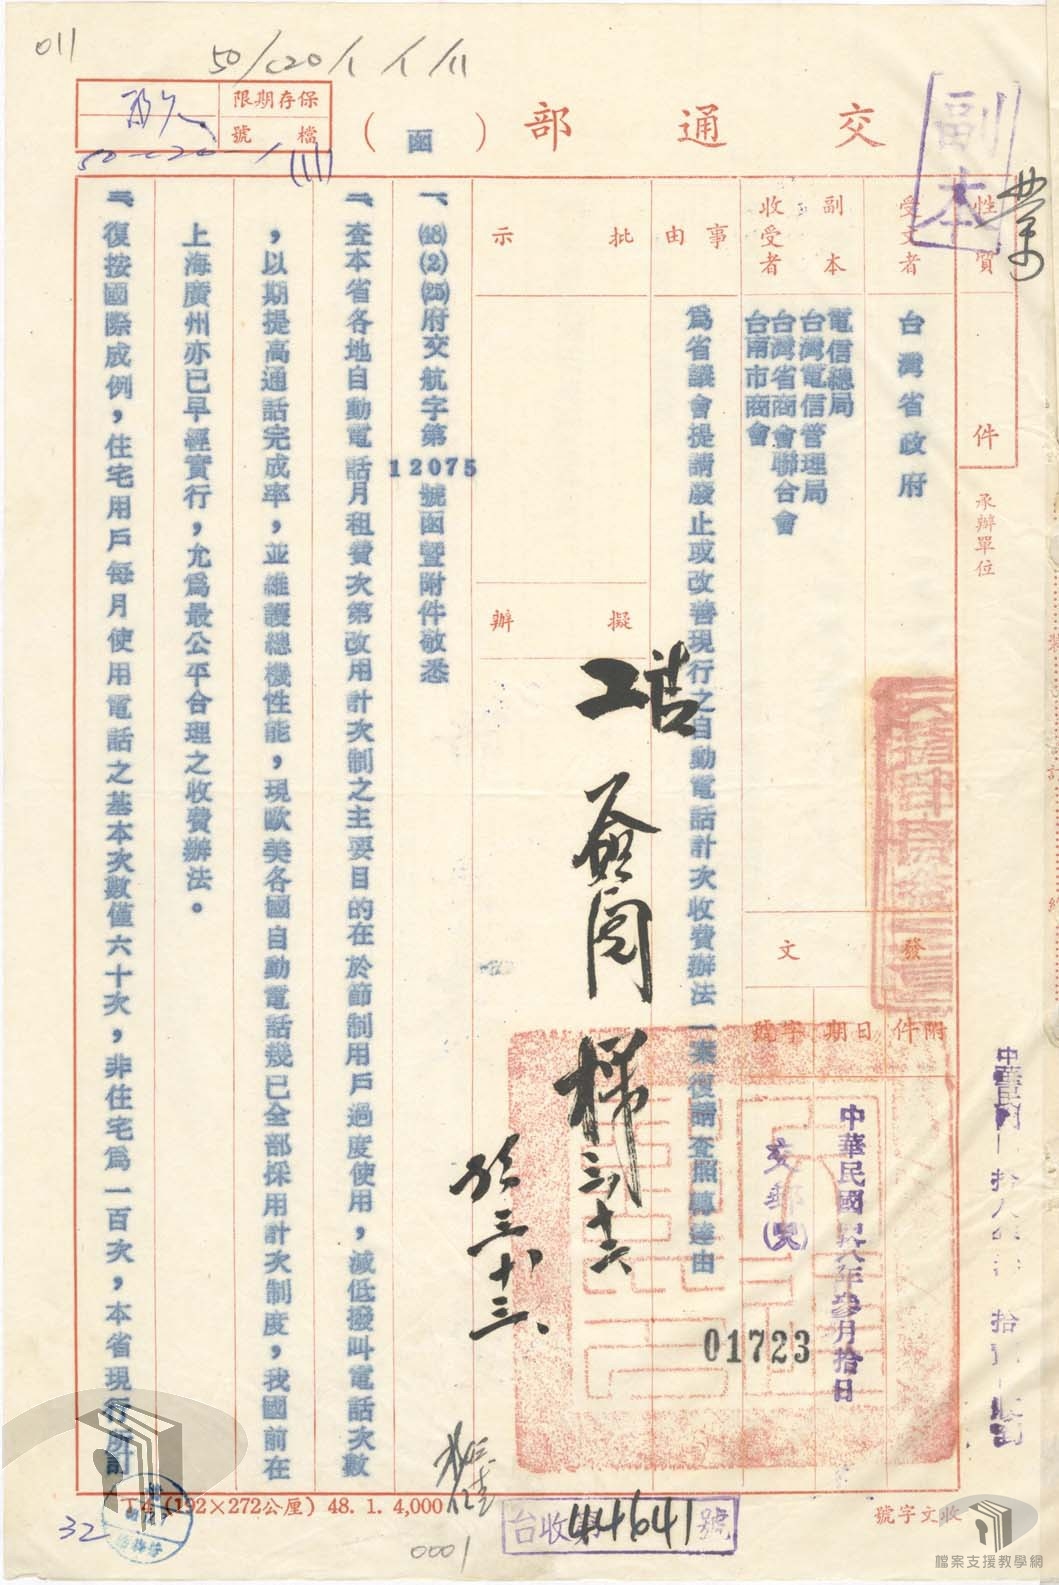 011
50/c20/1/1/11
保存期限
檔號
50-c20-1(11)
交通部(函)
副本
性質
件
承辦單位
受文者
台灣省政府
副本收受者
電信總局
台灣電信管理局
台灣省商會聯合會
台南市商會
發文
附件
日期
字號
中華民國四八年參月拾日
交郵(48)
01723
事由
為省議會提請廢止或改善現行之自動電話計次收費辦法一案復請查照轉達由
批示
擬辦
一、(48)(2)(25)府交航字第12075號函暨附件敬悉
二、查本省各地自動電話月租費次第改用計次制之主要目的在於節制用戶過度使用，減低撥叫電話次數
，以期提高通話完成率，並維護總機性能，現歐美各國自動電話幾已全部採用計次制度，我國前在
上海廣州亦已早經實行，尤為最公平合理之收費辦法。
三、復按國際成例，住宅用戶每月使用電話之基本次數僅六十次，非住宅為一百次，本省現行所訂
T4(192×272公厘) 48. 1. 4,000
台收 44641號
收文字號
32
0001
檔案支援教學網